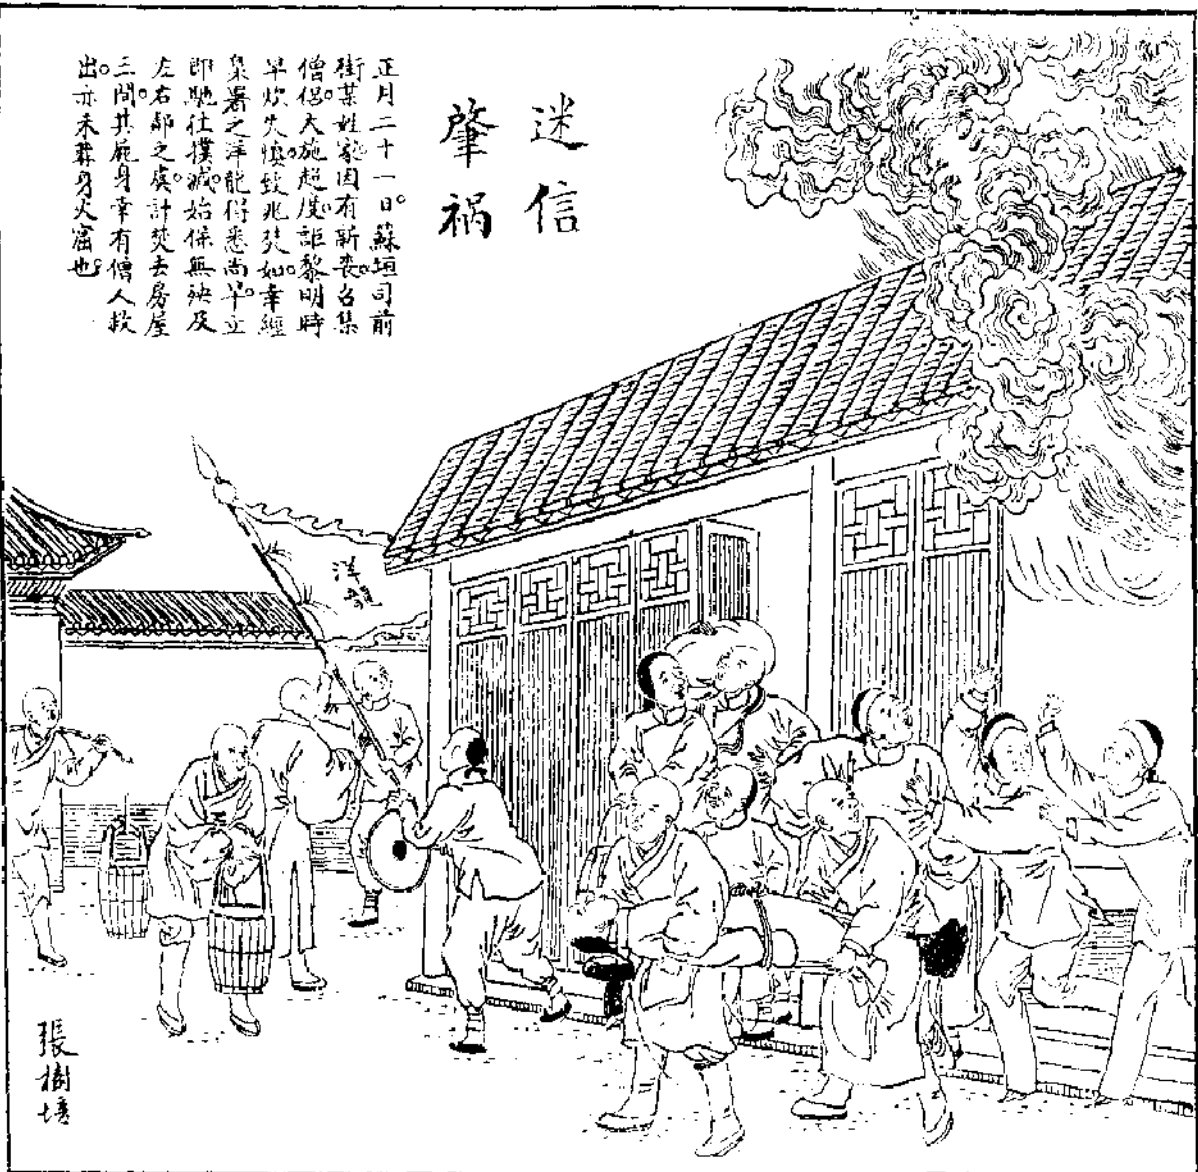 迷信
肇祸
正月二十一日。蘇垣司前
街某姓家因有新喪。召集
僧侶大施超度。詎黎明時
早炊失慎。致兆焚如。幸經
臬署之洋龍得悉尚早。立
即馳往撲滅。始保無殃及
左右鄰之虞。計焚去房屋
三間。其屍身幸有僧人救
出。亦未葬身火窟也。
洋龍
張樹培